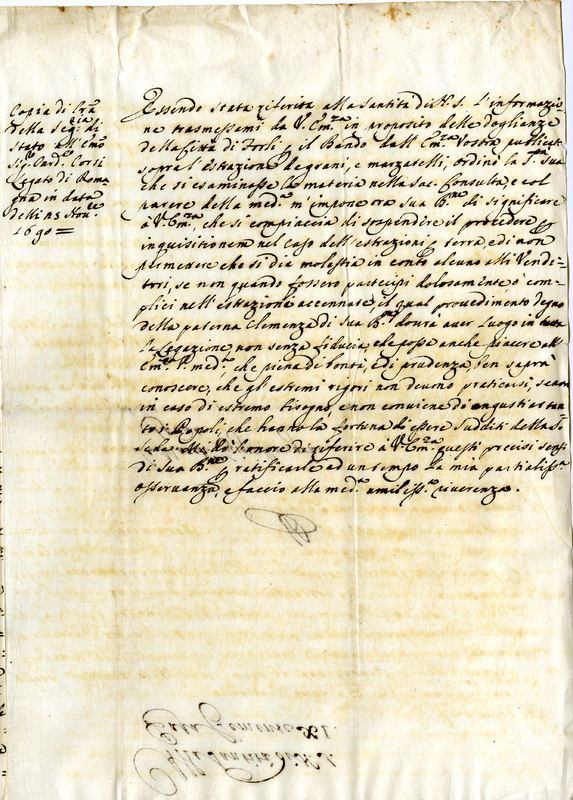 Copia di Lrã
della Seg.ria di
Stato all' Emõ
Sig.r Card. Corsi
Legato di Roma
gna in data
delli 25 Nov.e
1690 =
Essendo stata riferita alla Santità di N. S. l'informazio
ne trasmessami da V. Em.za in proposito delle doglianze
della Città di Forlì, p il Bando dall' Em.za Vostra publicato
sopra l'estrazione de grani, e marzatelli, ordinò la S. Sua
che si esaminasse la materia nella Sac. Consulta, e col
parere della med.a m'impone ora Sua B.ne di significare
à V. Em.za, che si compiaccia di sospendere il procedere p
inquisitionem nel caso dell' estrazioni p terra, e di non
permettere che si dia molestia in conto alcuno alli Vendi=
tori, se non quando fossero partecipi dolosamente, ò com=
plici nell' estrazioni accennate, il qual provedimento degno
della paterna Clemenza di Sua B.ne dovrà aver luogo in tutta
la Legazione, non senza fiducia, che possa anche piacere all'
Em. V. med.a, che piena di bontà, e di prudenza, ben saprà
conoscere, che gl' estremi rigori non devono praticarsi, se non
in caso di estremo bisogno, e non conviene di angustiar tan
to i Popoli, che hanno la fortuna di essere sudditi della
Sede honore di riferire à V. Em.za questi precisi sensi
di Sua B.ne p ratificarle ad un tempo la mia partialiss.a
osservanza, e faccio alla med.a umiliss.a riverenza.
Alla Santità di N. S.
Papa Clemente XI.